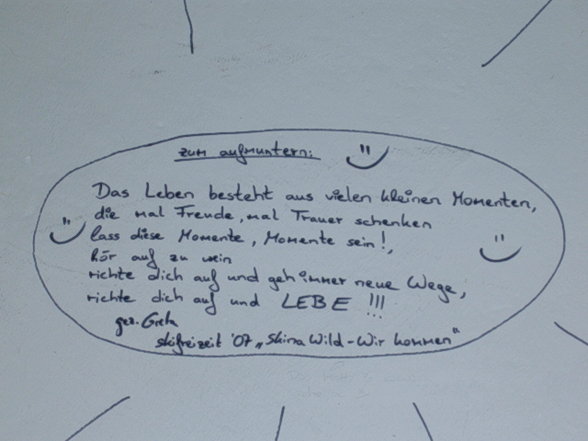 zum aufmuntern:
Das Leben besteht aus vielen kleinen Momenten,
die mal Freude, mal Trauer schenken
lass diese Momente, Momente sein!,
hör auf zu wein
richte dich auf und geh immer neue Wege,
richte dich auf und LEBE !!!
gez. Greta
skifreizeit '07 „Skina Wild - Wir kommen“